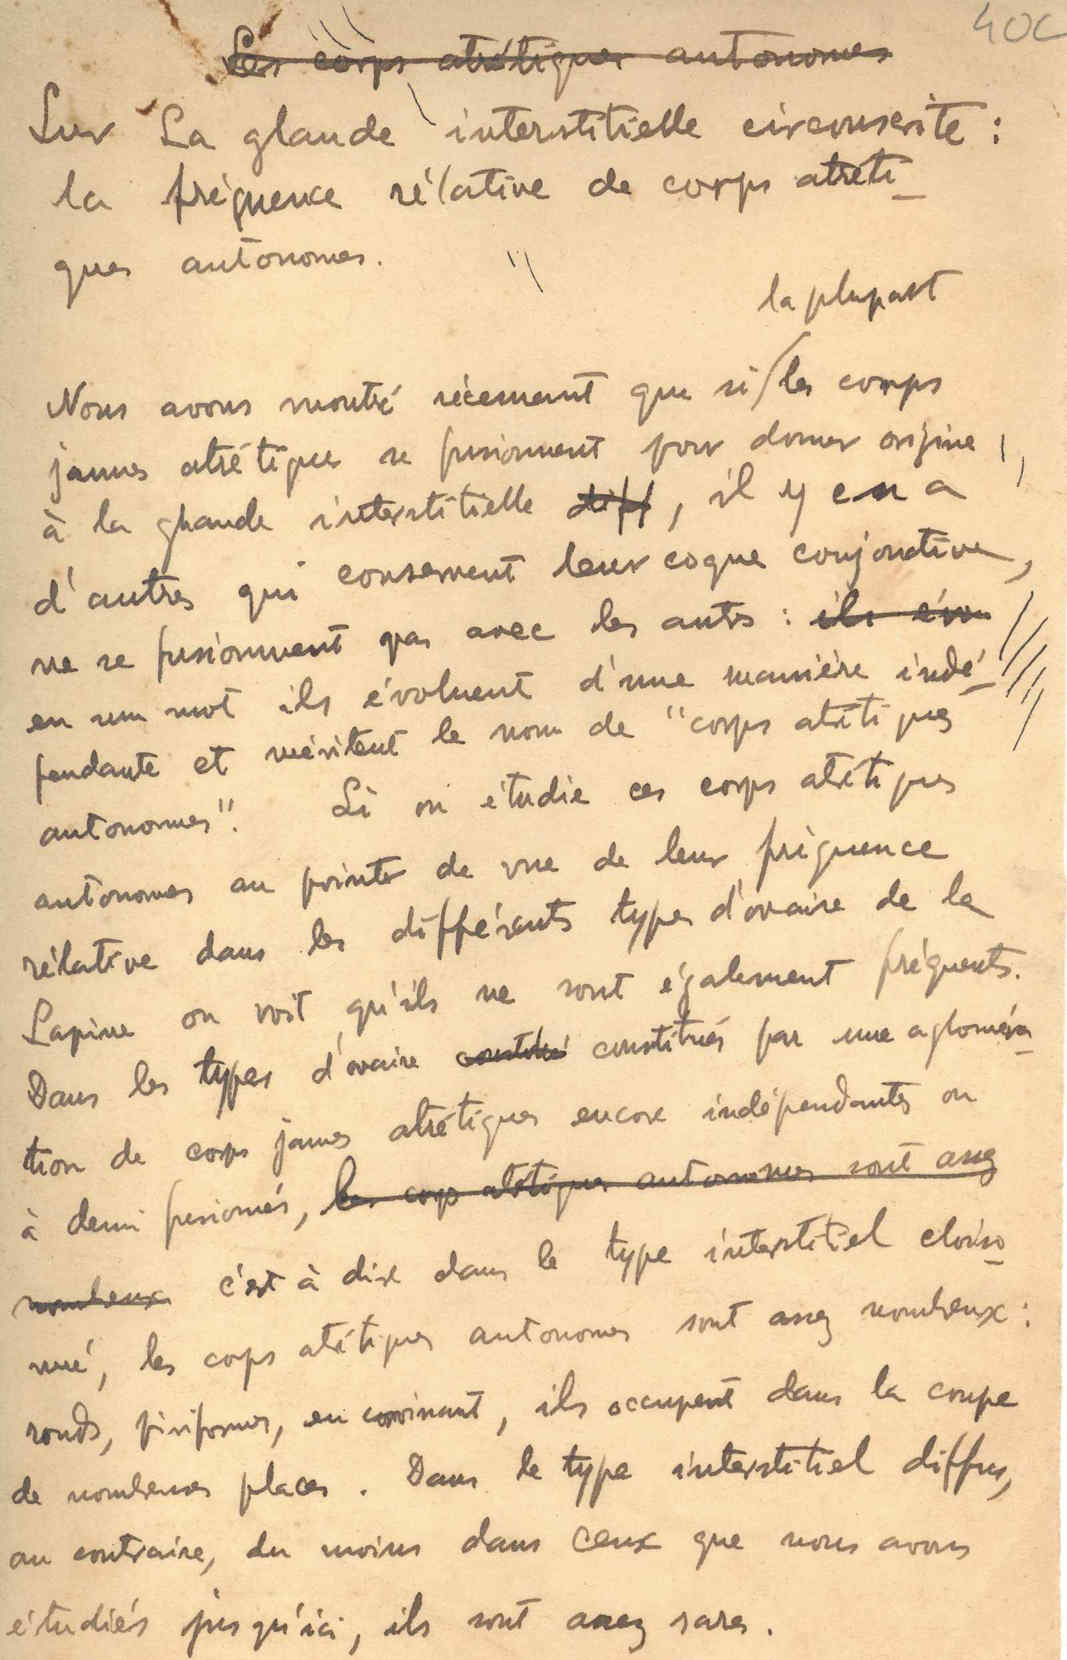 40C
Les corps atrétiques autonomes
Sur La glande interstitielle circonscrite :
la fréquence rélative de corps atréti-
ques autonomes.
la plupart
Nous avons montré récemment que si / les corps
jaunes atrétiques se fusionnent pour donner origine
à la glande interstitielle diff, il y en a
d'autres qui conservent leur coque conjonctive,
ne se fusionnent pas avec les autrs : ils évo
en um mot ils évoluent d'une manière indé-
pendante et méritent le nom de "corps atrétiques
autonomes". Si on étudie ces corps atrétiques
autonomes au pointe de vue de leur fréquence
rélative dans les différents types d'ovaire de la
Lapine on voit qu'ils ne sont également fréquents.
Dans les types d'ovaire constitué constitués par une aglomera-
tion de corps jaunes atrétiques encore indépendants ou
à demi fusionnés, les corps atrétiques autonomes sont assez
nombreux c'est à dire dans le type interstitiel cloiso-
nné, les corps atrétiques autonomes sont assez nombreux :
ronds, piriformes, en croissant, ils occupent dans la coupe
de nombreuses places. Dans le type interstitiel diffus,
au contraire, du moins dans ceux que nous avons
étudiés jusqu'ici, ils sont assez rares.